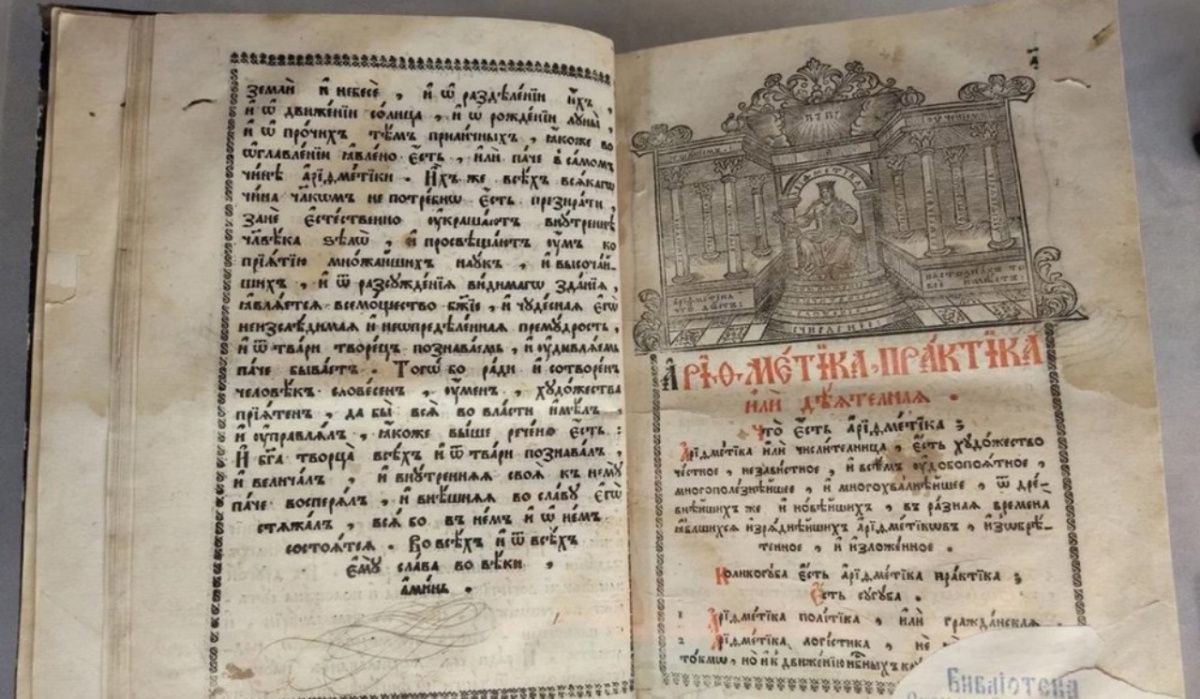 земли̑ и҆ небесѐ , и҆ ѿ раздѣле́нїи и҆́хъ ,
и҆ ѿ движе́нїи со́лнца , и҆ ѿ рожде́нїи лꙋны̀ ,
и҆ ѿ про́чихъ тѣ́мъ прили́чныхъ , ꙗ҆́коже во
ѡ҆главле́нїи ꙗ҆вле́но є҆́сть , и҆лѝ па́че в са́момъ
чи́нѣ а҆риѳме́тїки . И҆́хъ же всѣ́хъ всѧ́кагѡ
чи́на чл҃кѡмъ не потре́бнѡ є҆́сть презира́ти ,
занѐ є҆сте́ственно оу҆краша́ютъ внꙋ́тренне
чл҃вѣ́ка ѕѣлѡ̀ , и҆ просвѣща́ютъ оу҆́мъ ко
прїѧ́тїю мно́жайшихъ наꙋ́къ , и҆ высоча́й-
шихъ , и҆ ѿ разсꙋжде́нїѧ ви́димагѡ зда́нїѧ ,
ꙗ҆влѧ́етсѧ всемо́щество бж҃їе , и҆ чꙋде́снаѧ є҆гѡ̀
неизслѣди́маѧ и҆ неѡпредѣле́ннаѧ премꙋ́дрость ,
и҆ ѿ тва́ри творе́цъ познава́емь , и҆ оу҆дивлѧ́емь
па́че быва́етъ . Тогѡ́ бо ра́ди и҆ сотворе́н
человѣ́къ слове́сен , оу҆́мен , хꙋдо́жества
прїѧ́тен , да бы̀ всѧ̑ во вла́сти и҆мѣ́лъ ,
и҆ оу҆правлѧ́лъ , ꙗ҆́коже вы́ше рече́но є҆́сть :
И҆ бг҃а творца̀ всѣ́хъ и҆ ѿ тва́ри познава́лъ ,
и҆ велича́лъ , и҆ внꙋ́треннѧѧ своѧ̑ къ немꙋ̀
па́че восперѧ́лъ , и҆ внѣ́шнѧѧ во сла́вꙋ є҆гѡ̀
стѧжа́лъ , всѧ̑ бо въ не́мъ и҆ ѡ҆ не́мъ
состоѧ́тсѧ . Во всѣ́хъ и҆ ѿ всѣ́хъ
є҆мꙋ̀ сла́ва во вѣ́ки ,
а҆ми́нь .
а҃
АРИѲМЕТІКА
А҆риѳме́тїка
что̀ дѣ́етъ :
А҆РИѲМЕ́ТЇКА ПРА́КТЇКА
и҆лѝ дѣ́ѧтелнаѧ .
Что̀ є҆́сть а҆риѳме́тїка ;
А҆риѳме́тїка и҆лѝ числи́телница , є҆́сть хꙋдо́жество
че́стное , незави́стное , и҆ всѣ́мъ оу҆добопоѧ́тное ,
многополе́знѣйшее , и҆ многохва́лнѣйшее , ѿ дре́в-
нѣйшихъ же и҆ новѣ́йшихъ , въ ра́знаѧ времена̀
ꙗ҆́вльшихсѧ и҆зрѧ́днѣйшихъ а҆риѳме́тїкѡвъ , и҆зѡбрѣ́-
тенное , и҆ и҆зло́женное .
Коликогꙋ́ба є҆́сть а҆риѳме́тїка пра́ктїка ;
Е҆́сть сꙋгꙋ́ба .
1 А҆риѳме́тїка полі́тїка , и҆лѝ гражда́нскаѧ .
2 А҆риѳме́тїка логі́стїка , не
то́кмѡ , но и҆ к движе́нїю нб҃ныхъ кр
Библіотека